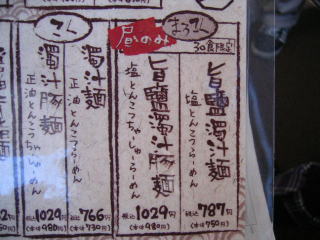 まろてん
30食限定
昼のみ
旨鹽濁汁麺
塩とんこつらーめん
税込787円
(本体750円)
旨鹽濁汁豚麺
塩とんこつちゃーしゅーらーめん
税込1029円
(本体980円)
濁汁麺
正油とんこつらーめん
税込766円
(本体730円)
濁汁豚麺
正油とんこつちゃーしゅーらーめん
税込1029円
(本体980円)